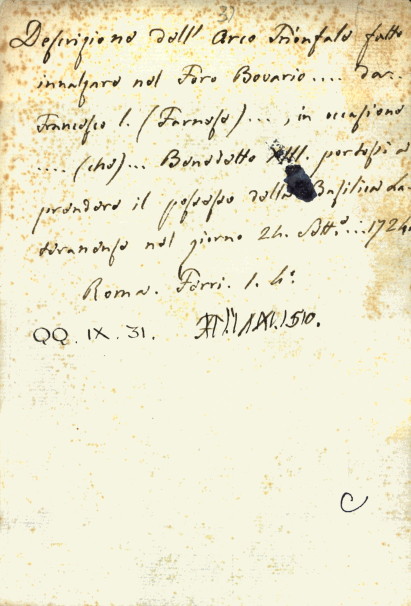 3)
Descrizione dell' Arco Trionfale fatto
innalzare nel Foro Boario .... da..
Francesco I. (Farnese) ..., in occasione
.... (che) ... Benedetto XIII. portossi a
prendere il possesso della Basilica La-
teranense nel giorno 24. Sett.e ... 1724.
Roma. Ferri. f.º
QQ. IX. 31.
C